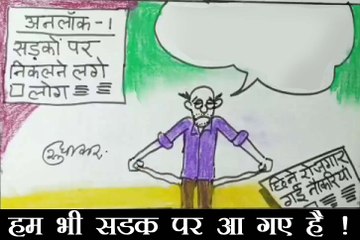 अनलॉक -1
सड़कों पर
निकलने लगे
लोग
सुधाकर
छिने रोजगार
गई नौकरियां
हम भी सडक पर आ गए है !